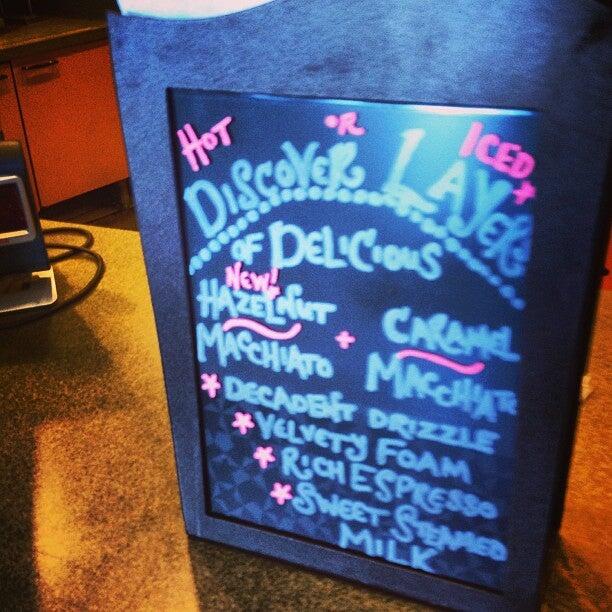 HOT OR ICED
DISCOVER LAYERS
OF DELICIOUS
NEW!
HAZELNUT + CARAMEL
MACCHIATO MACCHIATO
* DECADENT DRIZZLE
* VELVETY FOAM
* RICH ESPRESSO
* SWEET STEAMED
MILK